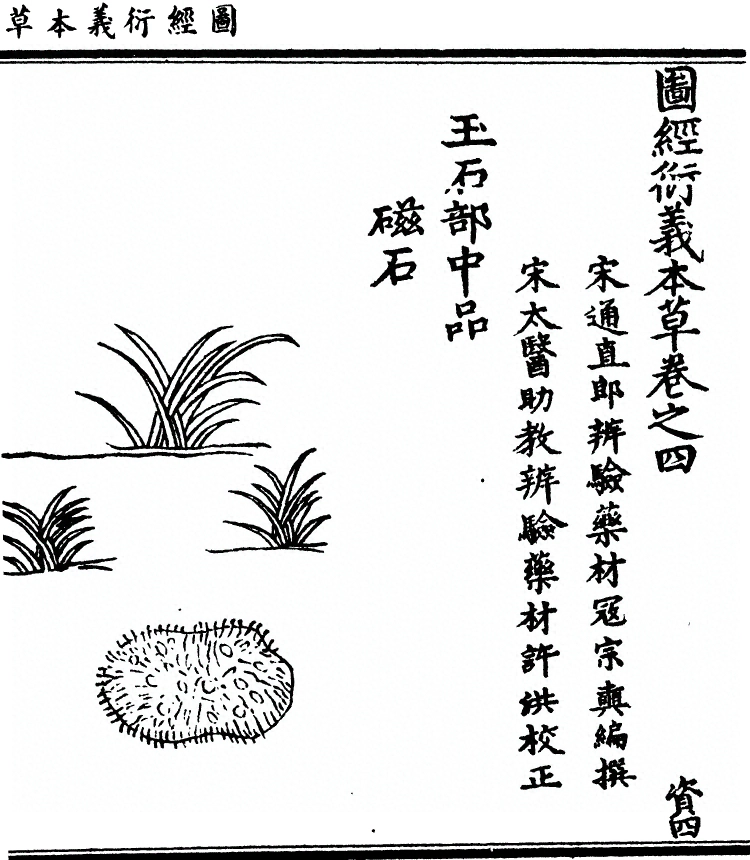 圖經衍義本草
圖經衍義本草卷之四
資四
宋通直郎辨驗藥材寇宗奭編撰
宋太醫助教辨驗藥材許洪校正
玉石部中品
磁石